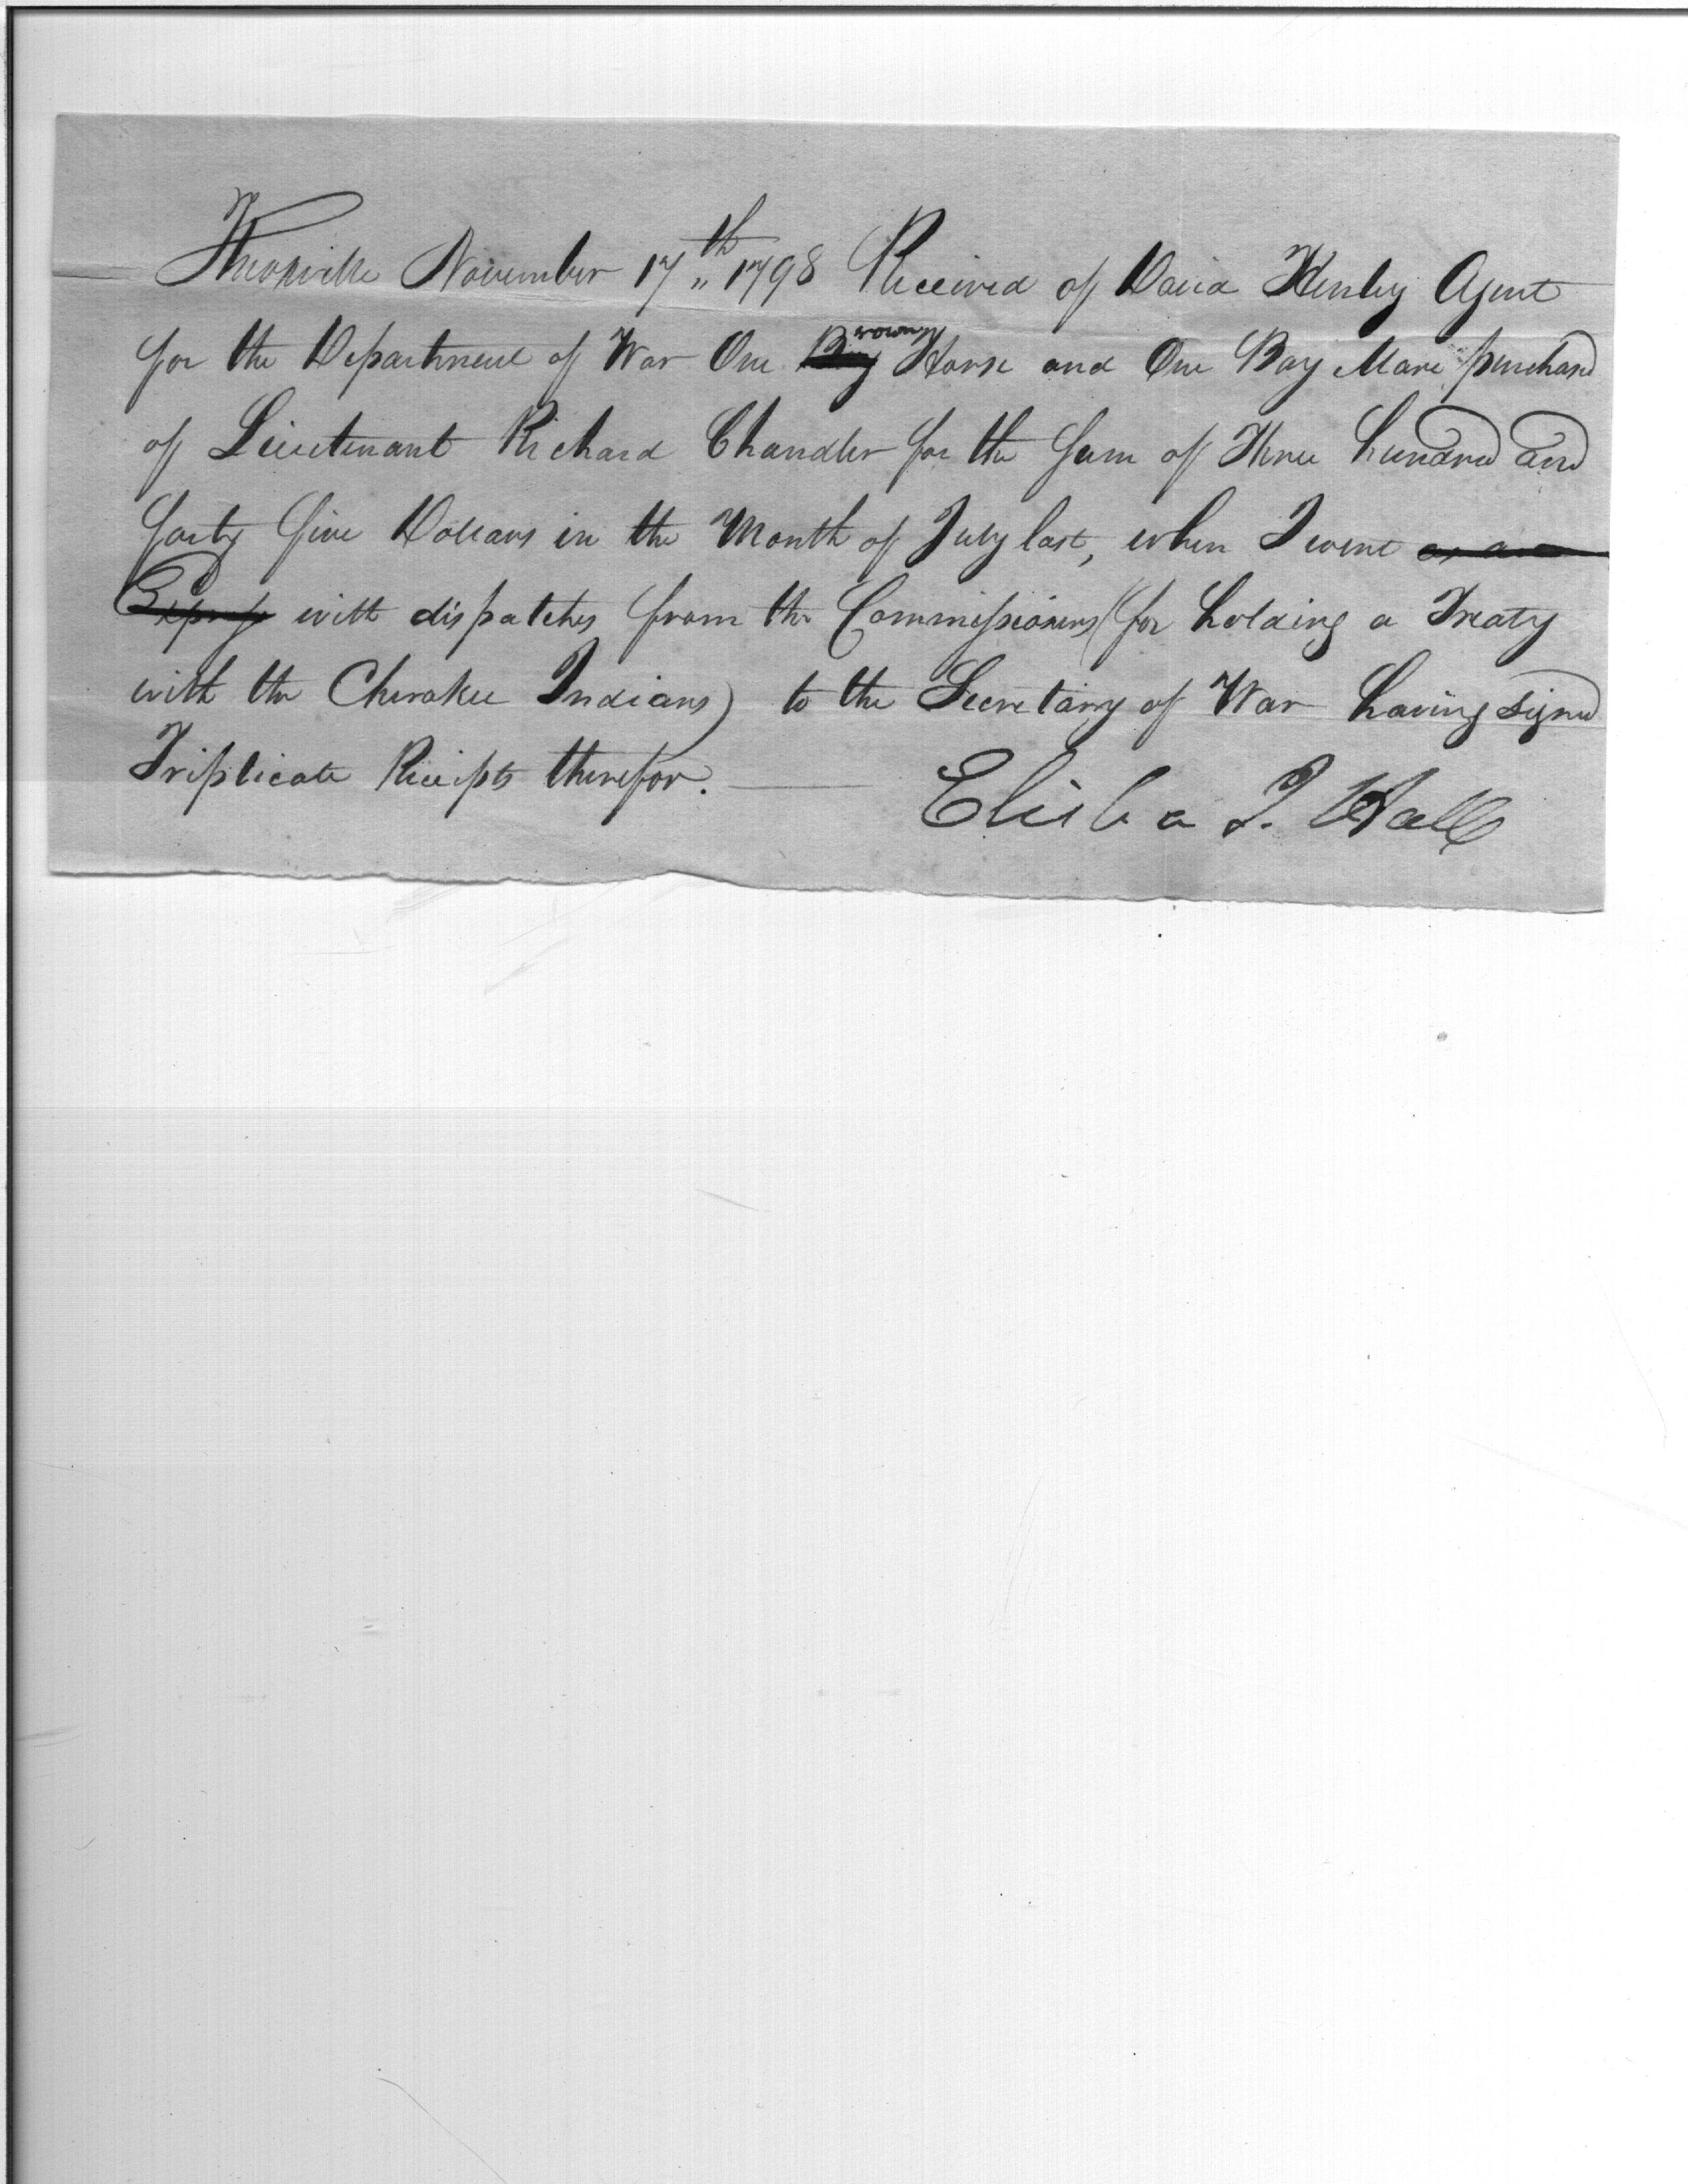 Knoxville November 17th 1798 Received of David Henley Agent
for the Department of War One Bay brown Horse and One Bay Mare purchased
of Lieutenant Richard Chandler for the Sum of Three hundred and
forty five Dollars in the Month of July last, when I went as an
Express with dispatches from the Commissioners (for holding a Treaty
with the Cherokee Indians) to the Secretary of War having signed
Triplicate Receipts therefor.
Elisha I. Hall